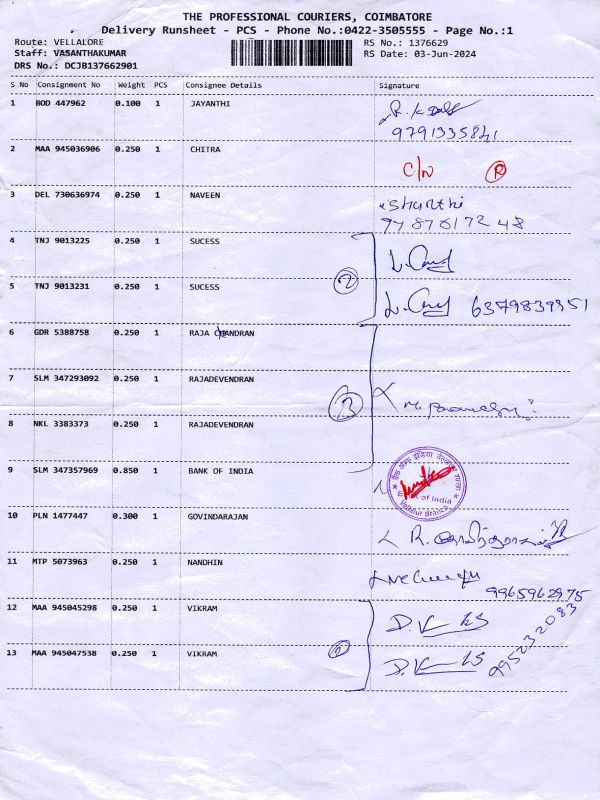 THE PROFESSIONAL COURIERS, COIMBATORE
Delivery Runsheet - PCS - Phone No.:0422-3505555 - Page No.:1
Route: VELLALORE
RS No.: 1376629
Staff: VASANTHAKUMAR
RS Date: 03-Jun-2024
DRS No.: DCJB137662901
S No Consignment No Weight PCS Consignee Details Signature
1 BOD 447962 0.100 1 JAYANTHI
9791335841
2 MAA 945036906 0.250 1 CHITRA
C/N R
3 DEL 730636974 0.250 1 NAVEEN
Shanthi
9787617248
4 TNJ 9013225 0.250 1 SUCESS
2
5 TNJ 9013231 0.250 1 SUCESS
6379839351
6 GDR 5388758 0.250 1 RAJA CHANDRAN
7 SLM 347293092 0.250 1 RAJADEVENDRAN
3
8 NKL 3383373 0.250 1 RAJADEVENDRAN
9 SLM 347357969 0.850 1 BANK OF INDIA
of India
Branch
10 PLN 1477447 0.300 1 GOVINDARAJAN
11 MTP 5073963 0.250 1 NANDHIN
9965962975
12 MAA 945045298 0.250 1 VIKRAM
13 MAA 945047538 0.250 1 VIKRAM